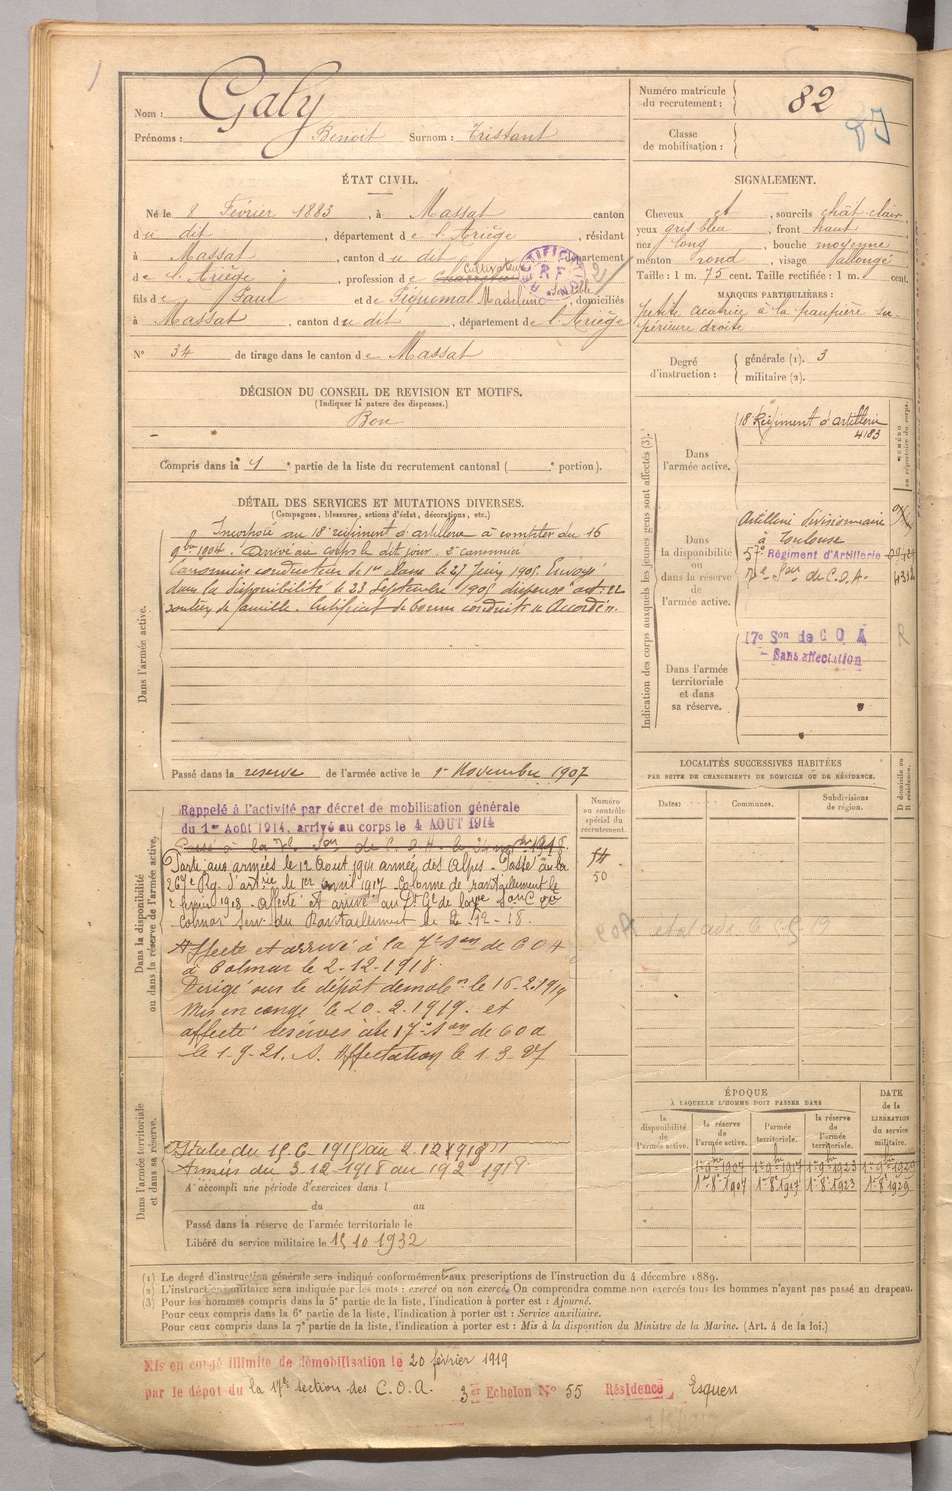 Nom : Galy
Prénoms : Benoit Surnom : Tristant
Numéro matricule du recrutement : 82
Classe de mobilisation :
ÉTAT CIVIL.
Né le 8 Février 1883, à Massat canton
du dit, département de l'Ariège, résidant
à Massat, canton du dit département
de l'Ariège, profession de Charretier Cultivateur
fils de Paul et de Piquemal Madeleine, domiciliés
à Massat, canton du dit, département de l'Ariège
RECTIFICATION R F
N° 34 de tirage dans le canton de Massat
SIGNALEMENT.
Cheveux et, sourcils chât clair,
yeux gris bleu, front haut
nez long, bouche moyenne
menton rond, visage allongé
Taille : 1 m. 75 cent. Taille rectifiée : 1 m. cent.
MARQUES PARTICULIÈRES :
petite cicatrice à la paupière su-
périeure droite
Degré d'instruction : générale (1). 3
militaire (2).
DÉCISION DU CONSEIL DE REVISION ET MOTIFS.
(Indiquer la nature des dispenses.)
Bon
Compris dans la 1e partie de la liste du recrutement cantonal ( e portion).
DÉTAIL DES SERVICES ET MUTATIONS DIVERSES.
(Campagnes, blessures, actions d'éclat, décorations, etc.)
Dans l'armée active.
Incorporé au 18e régiment d'artillerie à compter du 16
9bre 1904. Arrivé au corps le dit jour. 2e canonnier
Canonnier conducteur de 1re classe le 27 Juin 1905. Envoyé
dans la disponibilité le 23 Septembre 1905 dispensé art. 22
soutien de famille. Certificat de bonne conduite "Accordé".
Passé dans la reserve de l'armée active le 1er Novembre 1907
Indication des corps auxquels les jeunes gens sont affectés (3).
NUMÉRO au répertoire du corps.
Dans l'armée active.
18 Régiment d'artillerie
4183
Dans la disponibilité ou dans la réserve de l'armée active.
Artillerie divisionnaire
à Toulouse
57e Régiment d'Artillerie
7e Son de C.O.A. 4312
Dans l'armée territoriale et dans sa réserve.
17e Son de C O A
Sans affectation
R
Dans la disponibilité ou dans la réserve de l'armée active.
Rappelé à l'activité par décret de mobilisation générale
du 1er Août 1914, arrivé au corps le 4 AOUT 1914
Passé à la 7e Son de C. O. A. le
Parti aux armées le 12 Août 1914 armée des Alpes - Passé au
267e Rg. d'artie le 1er avril 1917 - Colonne de ravitaillement le
Colmar Serv. du Ravitaillement le 2-12-18.
Affecté et arrivé à la 7e Son de C O A
à Colmar le 2-12-1918.
Dirigé sur le dépôt démobon le 16-2-1919
Mis en congé le 20-2-1919. et
affecté réserves à la 17e Son de C O A
le 1-9-21. S. Affectation le 1-3-27
Dans l'armée territoriale et dans sa réserve.
Armées du 3-12-1918 au
A accompli une période d'exercices dans l
du au
Passé dans la réserve de l'armée territoriale le
Libéré du service militaire le 15 10 1932
Numéro au contrôle spécial du recrutement.
50
LOCALITÉS SUCCESSIVES HABITÉES
PAR SUITE DE CHANGEMENTS DE DOMICILE OU DE RÉSIDENCE.
Dates : Communes. Subdivisions de région. D domicile ou R résidence.
ÉPOQUE
À LAQUELLE L'HOMME DOIT PASSER DANS
la disponibilité de l'armée active. la réserve de l'armée active. l'armée territoriale. la réserve de l'armée territoriale. DATE de la LIBÉRATION du service militaire.
1er 9bre 1907 1er 9bre 1917 1er 9bre 1923 1er 9bre 1929
1er 8e 1907 1er 8e 1917 1er 8e 1923 1er 8e 1929
(1) Le degré d'instruction générale sera indiqué conformément aux prescriptions de l'instruction du 4 décembre 1889.
(2) L'instruction militaire sera indiquée par les mots : exercé ou non exercé. On comprendra comme non exercés tous les hommes n'ayant pas passé au drapeau.
(3) Pour les hommes compris dans la 5e partie de la liste, l'indication à porter est : Ajourné.
Pour ceux compris dans la 6e partie de la liste, l'indication à porter est : Service auxiliaire.
Pour ceux compris dans la 7e partie de la liste, l'indication à porter est : Mis à la disposition du Ministre de la Marine. (Art. 4 de la loi.)
Mis en congé illimité de démobilisation le 20 février 1919
par le dépot du la 17e section des C.O.A. 3er Echelon N° 55 Résidence Esquen